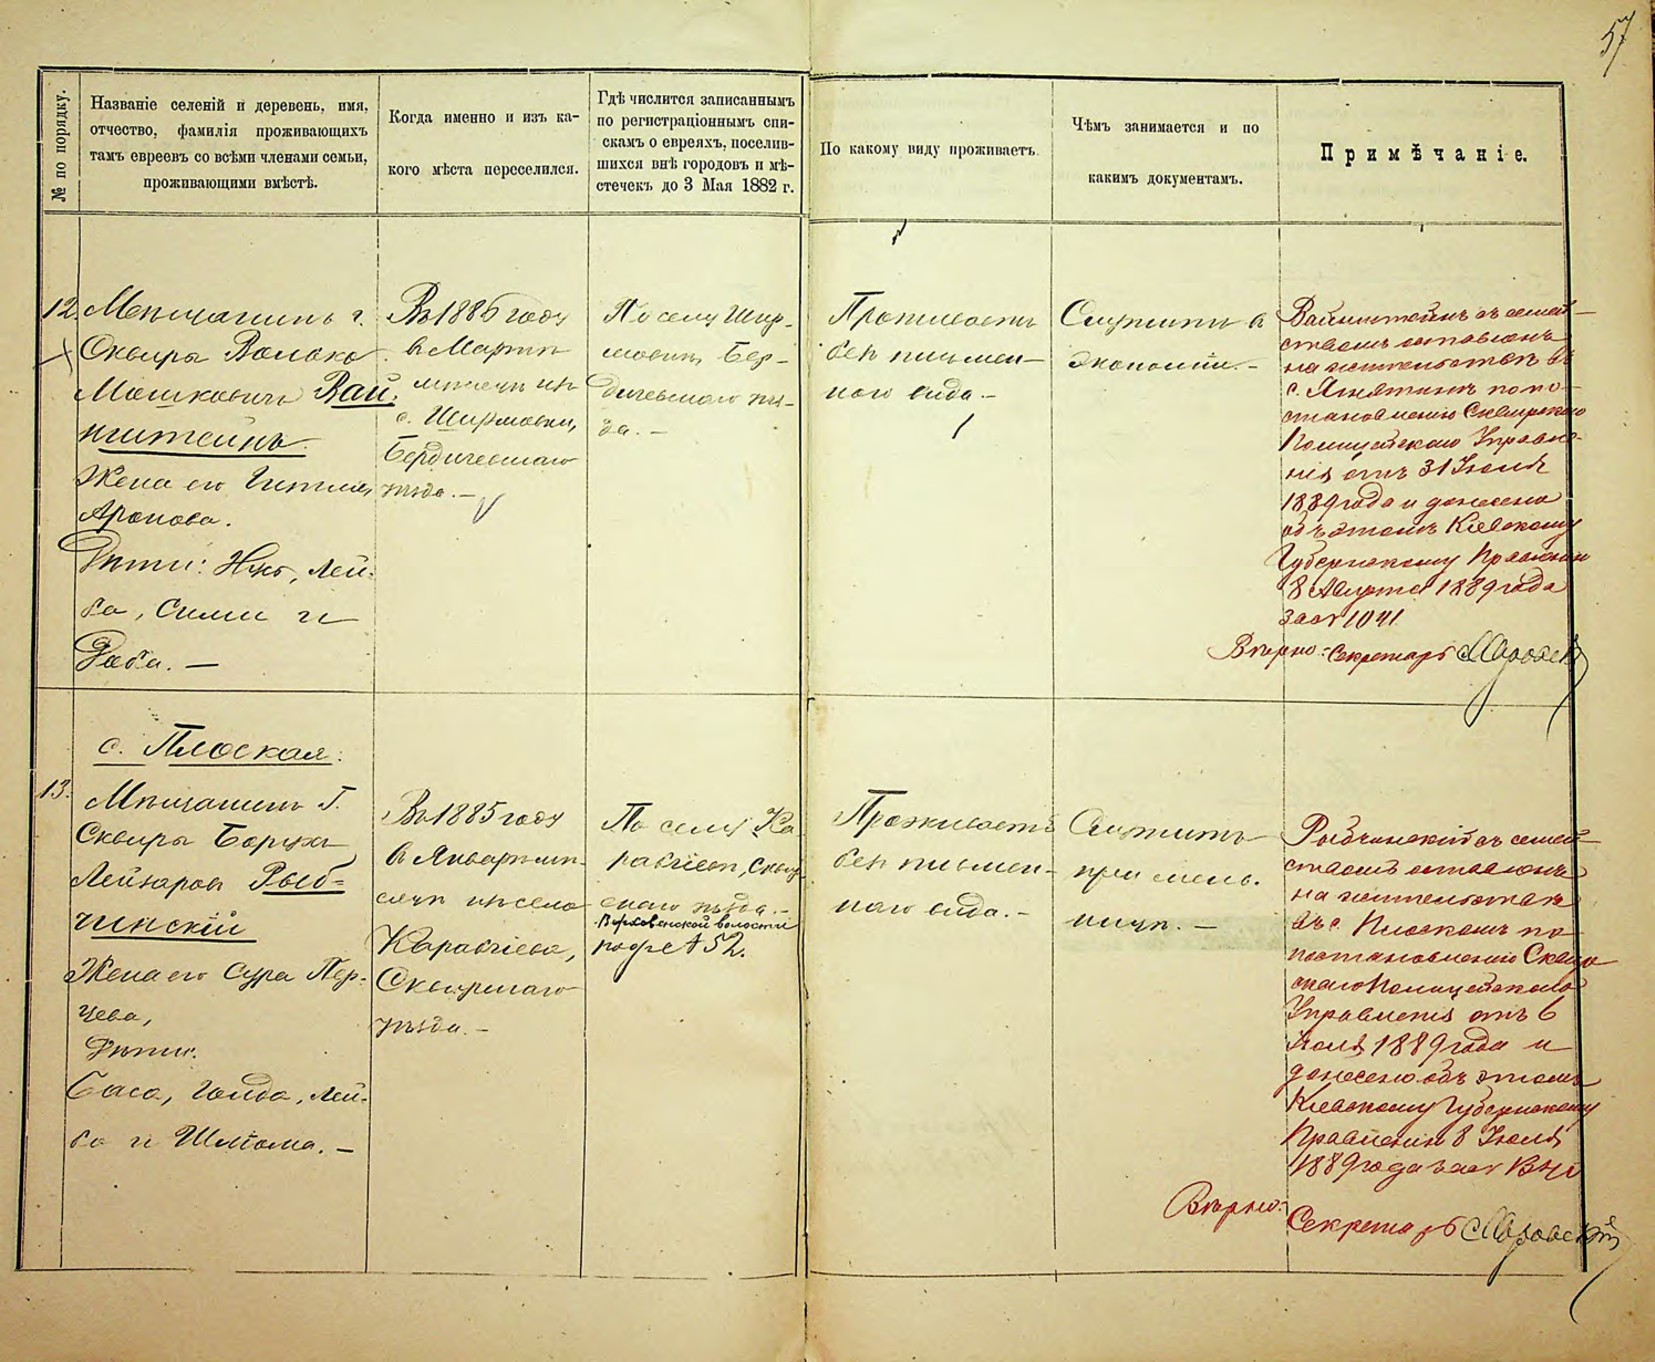 57
№ по порядку.
Названіе селеній и деревень, имя,
отчество, фамилія проживающихъ
тамъ евреевъ со всѣми членами семьи,
проживающими вмѣстѣ.
Когда именно и изъ ка-
кого мѣста переселился.
Гдѣ числится записаннымъ
по регистраціоннымъ спи-
скамъ о евреяхъ, поселив-
шихся внѣ городовъ и мѣ-
стечекъ до 3 Мая 1882 г.
По какому виду проживаетъ.
Чѣмъ занимается и по
какимъ документамъ.
Примѣчаніе.
12.
Мѣщанинъ г.
Сквиры Волько
Мошковичъ Вай-
нштейнъ.
Жена его Гитля
Аронова.
Дѣти: Лей-
ба, Сими и
Раба. —
Въ 1886 году
въ Мартѣ
мѣсяцѣ изъ
с. Ширмовки,
Бердичевскаго
уѣзда. —
По селу Шир-
мовкѣ, Бер-
дичевскаго уѣ-
зда. —
Проживаетъ
безъ письмен-
наго вида. —
Служитъ въ
экономіи. —
Вайнштейнъ съ семей-
ствомъ оставленъ
на жительствѣ въ
с. по по-
становленію Сквирскаго
Полицейскаго Управле-
нія отъ 31 Іюля
1889 года и донесено
объ этомъ Кіевскому
Губернскому Правленію
8 Августа 1889 года
за № 1041
Вѣрно: Секретарь
с. Плоская:
13.
Мѣщанинъ г.
Сквиры Борухъ
Лейзоровъ Рыб-
чинскій
Жена его Сура Пер-
цева,
Дѣти:
Бася, Голда, Лей-
ба и Шлёма. —
Въ 1885 году
въ Январѣ мѣ-
сяцѣ изъ села
Карабчіева,
Сквирскаго
уѣзда. —
По селу Ка-
рабчіевъ, Сквир-
скаго уѣзда. —
волости
подъ № 52.
Проживаетъ
безъ письмен-
наго вида. —
Служитъ
при мель-
ницѣ. —
Рыбчинскій съ семей-
ствомъ оставленъ
на жительствѣ
въ с. Плоскомъ по
постановленію Сквир-
скаго Полицейскаго
Управленія отъ 6
Іюля 1889 года и
донесено объ этомъ
Кіевскому Губернскому
Правленію 8 Іюля
1889 года за №
Вѣрно:
Секретарь